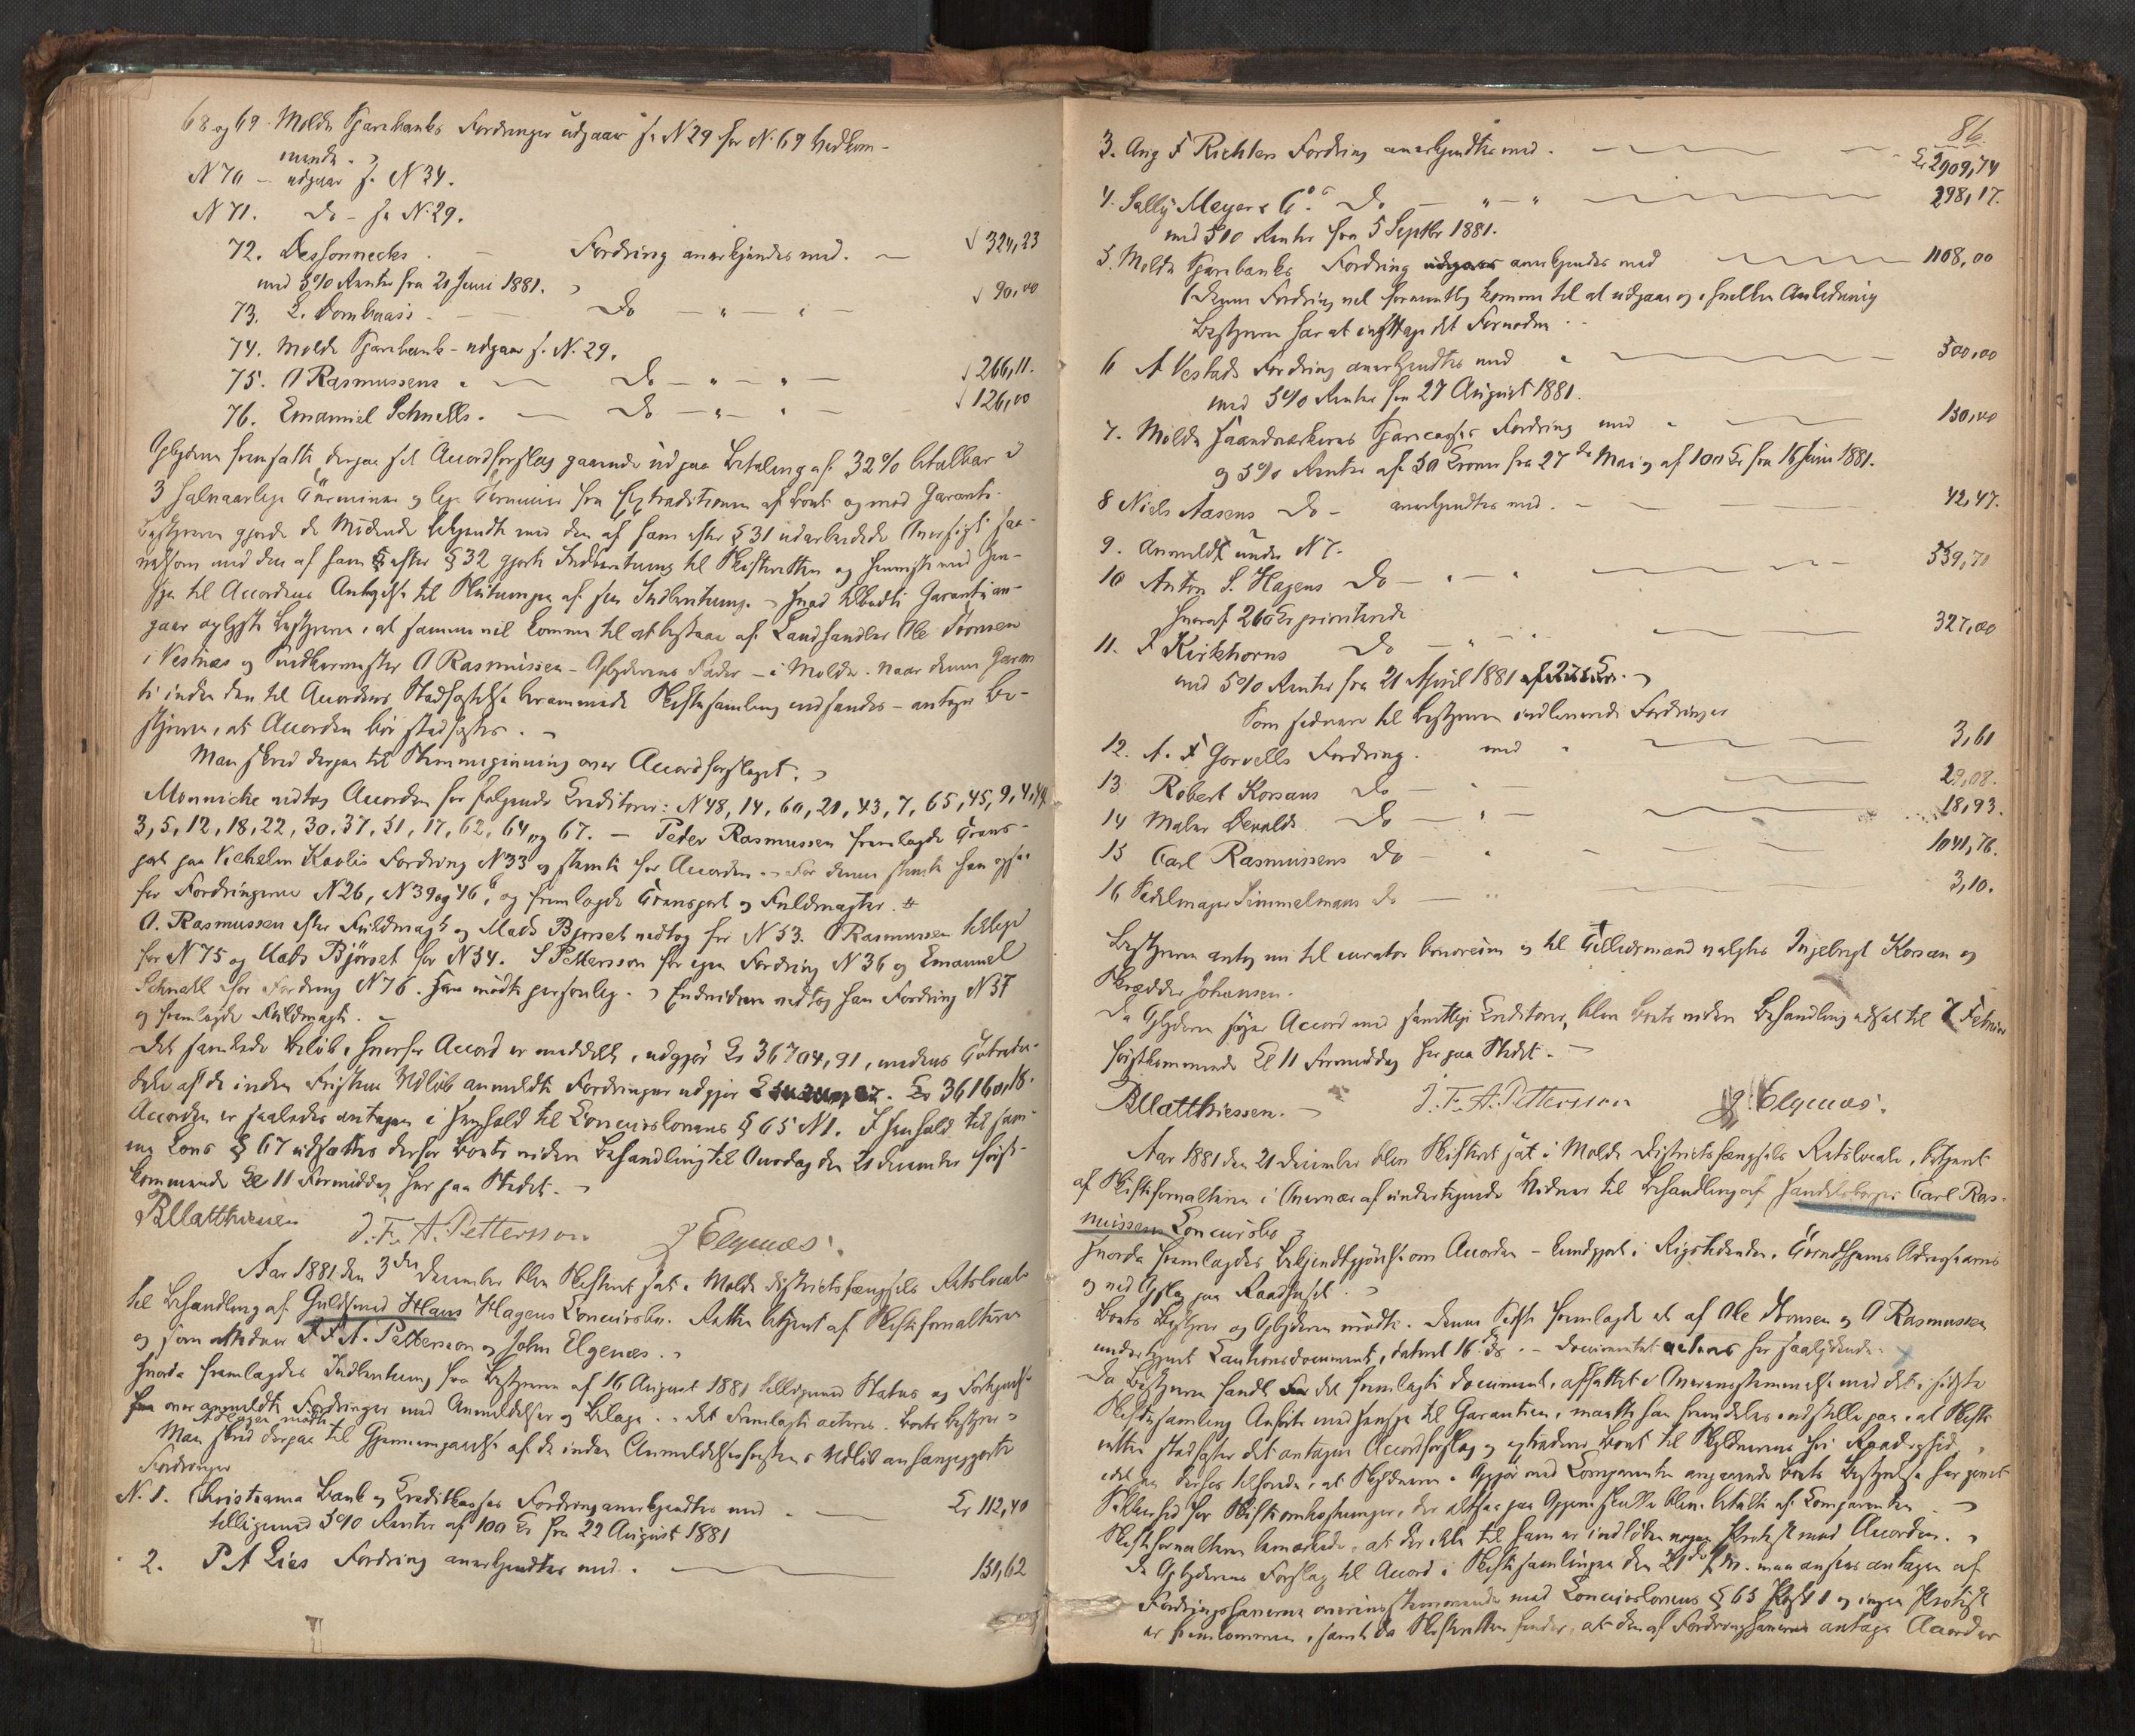 68 og 69. Molde Sparebanks Fordringer udgaar jf. N 29 for N. 69 Vedkom-
mende.
N 70 – udgaar jf. N 34.
N 71. Do – jf. N. 29.
72. Dessonnecks – Fordring anerkjendes med. – 324,23
med 5% Renter fra 21 Juni 1881.
73. L. Dombaass – Do – " – " – 90,00
74. Molde Sparebank – udgaar jf. N. 29.
75. O Rasmussens – Do – " – " – 266,11.
76. Emanuel Schnells. – Do – " – " – 126,00
fremsatte derpaa sit Accordforslag gaaende ud paa Betaling af 32% betalbar i
3 halvaarlige Terminer Termin fra Extraditionen af Boet og mod Garanti.
Bestyreren gjorde de Mødende bekjendt med den af ham efter § 31 udarbeidede Oversigt saa-
velsom med den af ham efter § 32 gjorte Indberetning til Skifteretten og henviste med Hen-
syn til Accordens Antagelse til Slutningen af sin Indberetning. – Hvad tilbudte Garanti an-
gaar oplyste Bestyreren, at samme vil komme til at bestaa af Landhandler Ole Thonsen
i Vestnæs og A Rasmussen – Fader – i Molde. Naar denne Garan-
ti inden den til Accordens Stadfæstelse berammede Skiftesamling – antager Be-
styreren, at Accorden bør stadfæstes. –
Man skred derpaa til Stemmegivning over Accordforslaget.
Mønniche vedtog Accorden for følgende Creditorer: N 48, 14, 60, 21, 43, 7, 65, 45, 9, 4, 44
3, 5, 12, 18, 22, 30, 37, 51, 17, 62, 64 og 67. – Peder Rasmussen fremlagde Trans-
port paa Vilhelm Kavlis Fordring N 33 og stemte for Accorden. – For denne stemte han ogsaa
for Fordringerne N 26, N 39 og 46, og fremlagde Transport og Fuldmagter.
O. Rasmussen efter Fuldmagt og Mads Bjørset vedtog for N 53. O Rasmussen
for N 75 og Mads Bjørset for N 54. S Pettersson for egen Fordring N 36 og Emanuel
Schnell for Fordring N 76. Han mødte personlig. Endvidere vedtog han Fordring N 37
og fremlagde Fuldmagt. –
Det samlede Beløb, hvorfor Accord er meddelt, udgjør Kr 36704,91, medens Total-
beløb af de inden Fristens Udløb anmeldte Fordringer udgjør Kr 36160,18.
Accorden er saaledes antagen i Henhold til Concurslovens § 65 N 1. I Henhold til sam-
me Lovs § 67 udsættes derfor Boets videre Behandling til Onsdag den 21 December først-
kommende Kl 11 Formiddag her paa Stedet. –
P. Matthiessen J. F. A. Pettersson J Elgenæs.
Aar 1881 den 3die December blev Skifteret sat i Molde Districtsfængsels Retslocale
til Behandling af Guldsmed Hans Hagens Concursbo. Retten betjent af Skifteforvalteren
og som Vidner J F A. Pettersson og John Elgenæs.
Hvorda fremlagdes Indberetning fra Bestyreren af 16 August 1881 tilligemed Status og
over anmeldte Fordringer med Anmeldelser og Bilage. – Det fremlagte acteres. Boets Bestyrer
A Hagen mødte
Man skred derpaa til Gjennemgaaelse af de inden Anmeldelsesfristens Udløb
Fordringer
N. 1. Christiania Bank og Creditkasses Fordring anerkjendtes med – Kr 112,40
tilligemed 5% Renter af 100 Kr fra 22 August 1881
2. P A Lies Fordring anerkjendtes med. – 151,62
86
3. Aug F Richters Fordring anerkjendtes med. – Kr 2909,74
4. Sally Meyer & Co Do – " – " – 298,17.
med 5% Renter fra 5 Septbr 1881.
5. Molde Sparebanks Fordring anerkjendes med – 1108,00
(Denne Fordring vil formentlig komme til at udgaa og i Anledning
Bestyreren har at iagttage det Fornødne.
6 A Vestads Fordring anerkjendtes med – 500,00
med 5% Renter fra 27 August 1881.
7. Molde Haandværkeres Sparecasses Fordring med – 150,00
og 5% Renter af 50 Kroner fra 27de Mai og af 100 Kr fra 16 Juni 1881.
8 Niels Aasens Do – anerkjendtes med. – 42,47.
9. Anmeldt under N 7.
10 Anton S. Hagens Do – " – 539,70
hvoraf 260 Kr prioriterede
11. F Kirkhorns Do – " – 327,00
med 5% Renter fra 21 April 1881
Som senere til Bestyreren indleverede Fordringer
12. A. F Gorvells Fordring. med " – 3,61
13 Robert Korsans Do – 29,08.
14 Maler Devolds Do – " – 18,93.
15 Carl Rasmussens Do – " – 1041,76.
16 Sadelmager Simmelmans Do – 3,10.
Bestyreren antog nu til curator bonorum og til Tillidsmand valgtes Ingebrigt Korsan og
Skrædder Johansen.
Da søger Accord med samtlige Creditorer, blev Boets videre Behandling udsat til 7 Februar
førstkommende Kl 11 Formiddag her paa Stedet. –
P. Matthiessen. J. F. A. Pettersson J Elgenæs.
Aar 1881 den 21 December blev Skifteret sat i Molde Districtsfængsels Retslocale, betjent
af Skifteforvalteren i Overvær af undertegnede Vidner til Behandling af Handelsborger Carl Ras-
mussens Concursbo
Hvorda fremlagdes Bekjendtgjørelse om Accorden – kundgjort i Rigstidenden, Trondhjems Adresseavis
og ved Opslag paa Raadhuset.
Boets Bestyrer og mødte. Denne Sidste fremlagde et af Ole Thonsen og O Rasmussen
undertegnet Cautionsdocument, dateret 16 ds. – Documentet acteres saalydende.
Da Bestyreren fandt det fremlagte Document, affattet i Overensstemmelse med det i sidste
Skiftesamling Anførte med Hensyn til Garantien, maatte han fremdeles indstille paa, at Skifte-
retten stadfæster det antagne Accordforslag og extraderer Boet til Skyldnerens fri Raadighed,
Opgjør med Comparenten angaaende Boets Bestyrelse har givet
Sikkerhed for Skifteomkostninger, der altsaa paa skulle blive betalte af Comparenten. –
Skifteforvalteren bemærkede, at der ikke til ham er indløben nogen Protest mod Accorden.
Da Forslag til Accord i Skiftesamlingen den 21de maa ansees antagen af
Fordringshaverne overensstemmende med Concurslovens § 65 Post 1 og ingen Protest
er fremkommen, samt da Skifteretten finder, at den af Fordringshaverne antagne Accord er